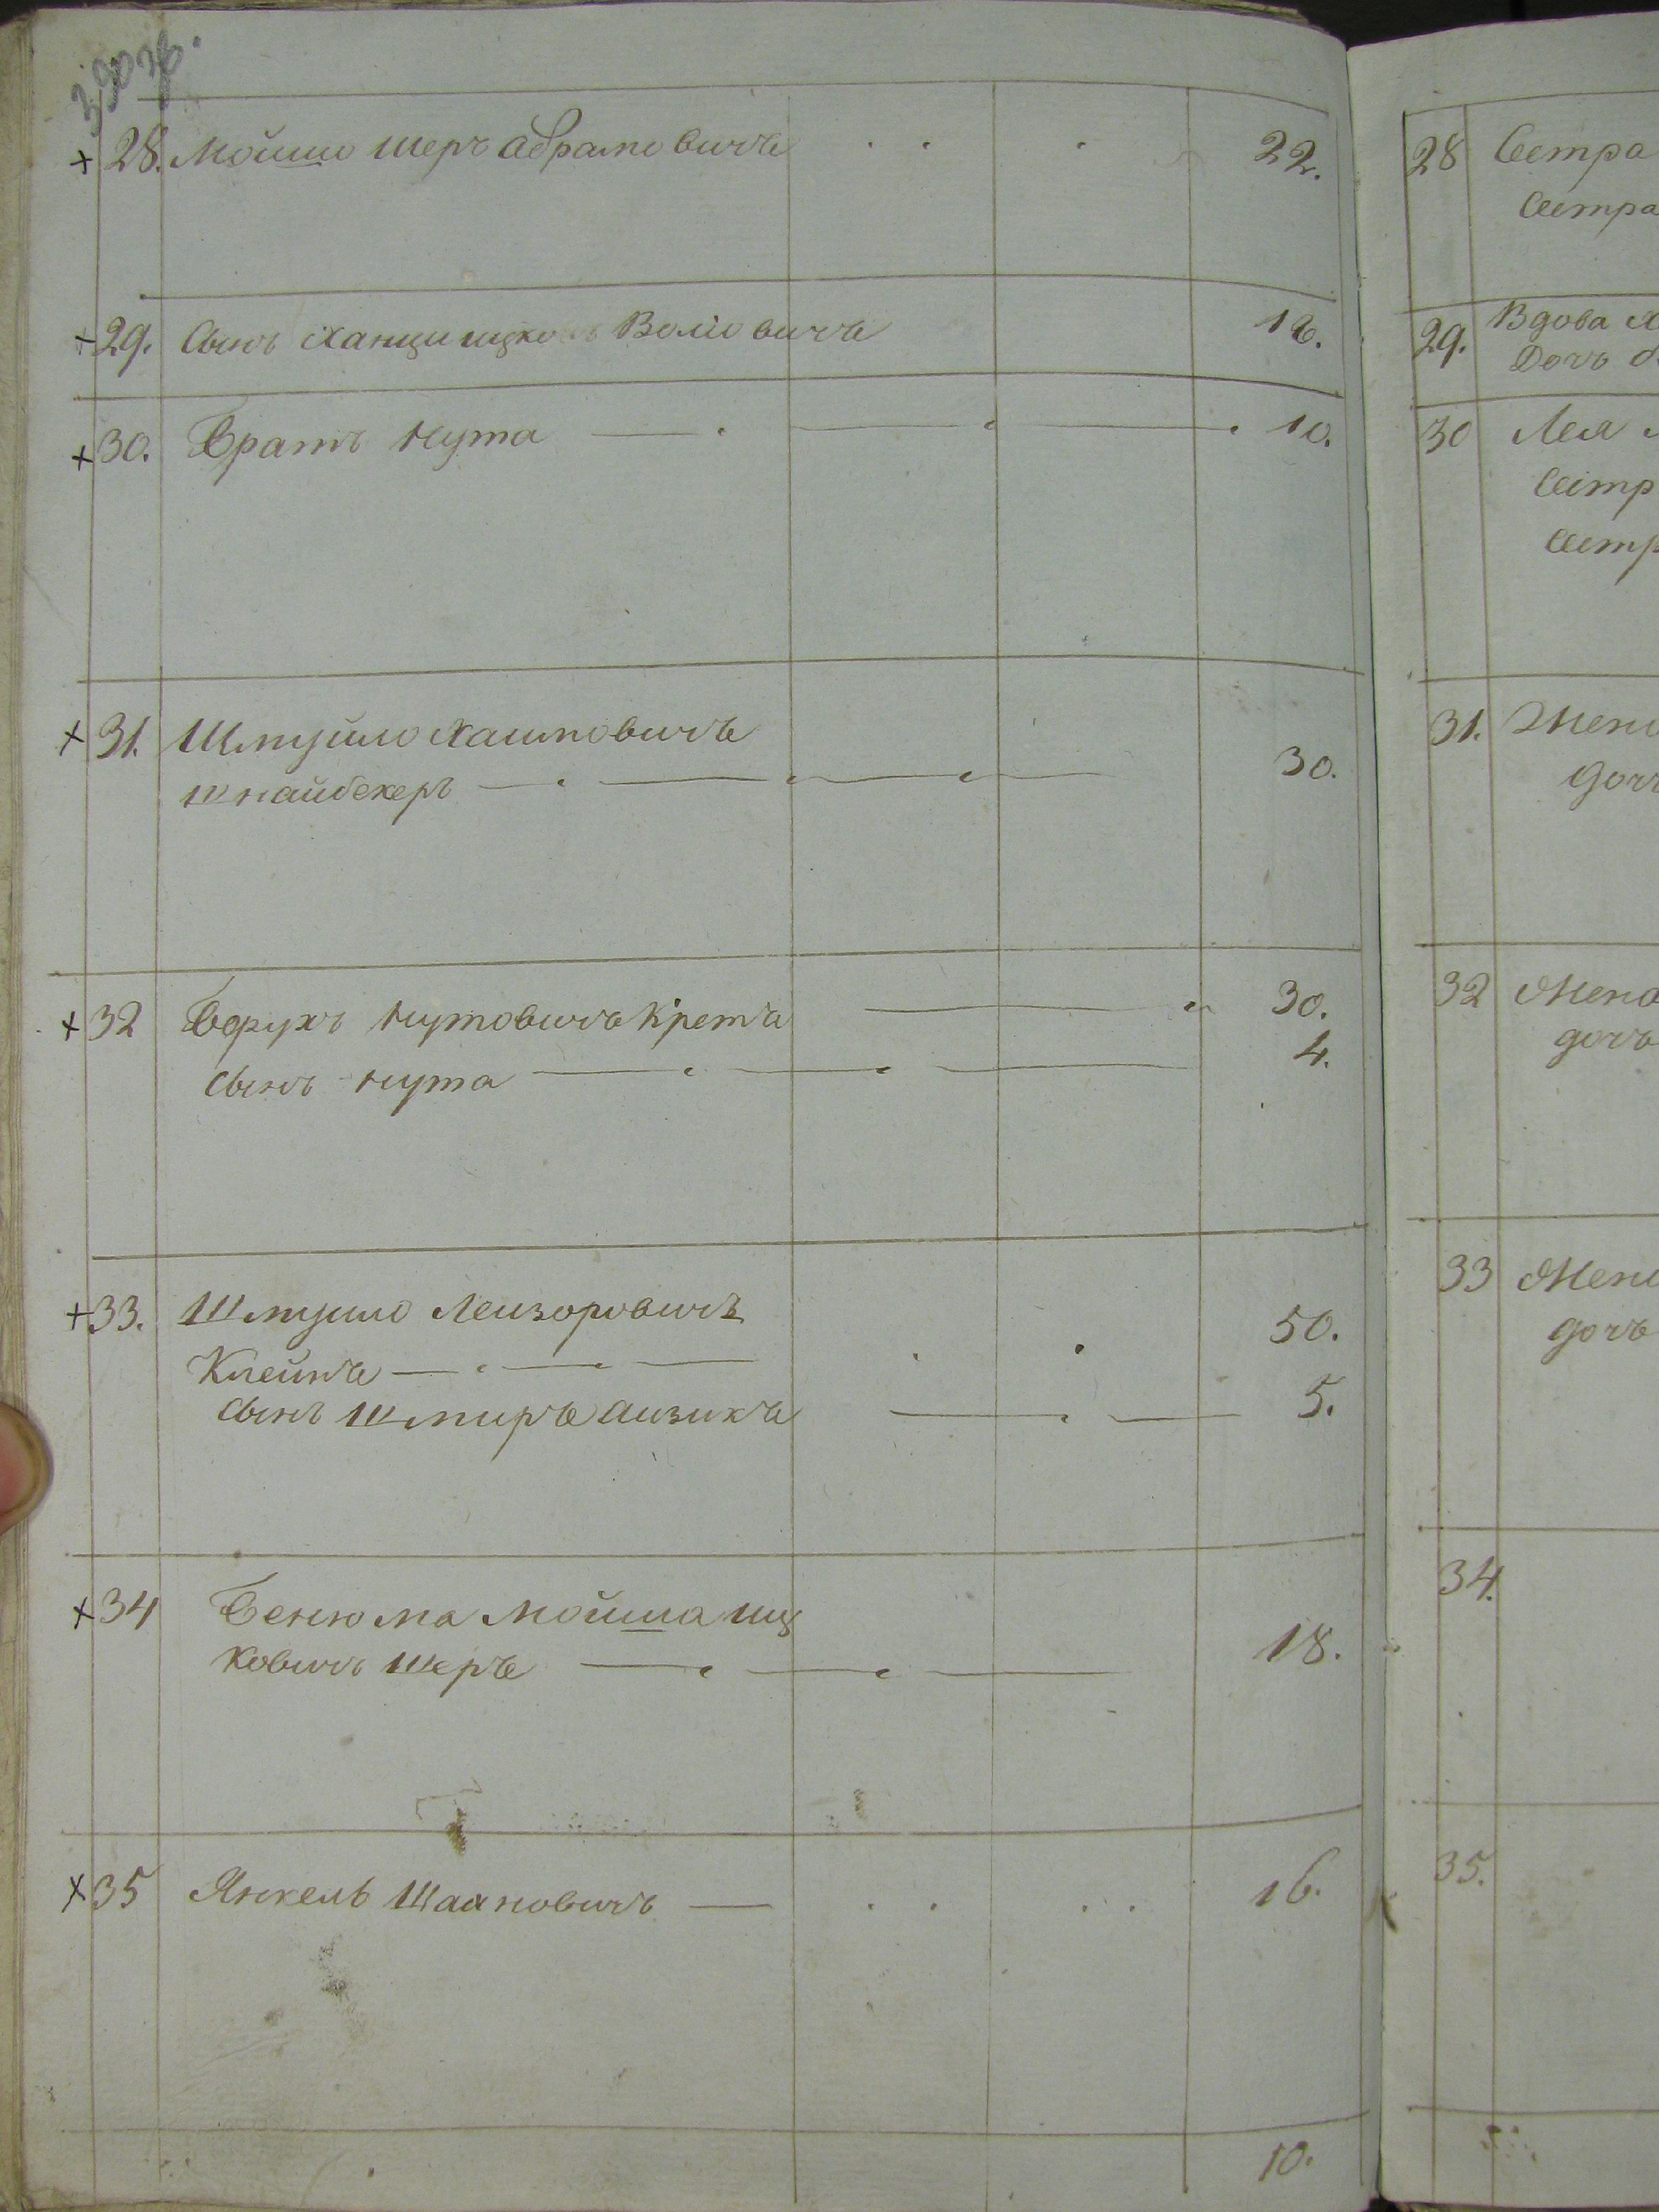 390 об.
+ 28. Мойши Шеръ Абрамовичъ . . . 22.
+ 29. Сынъ Ханци ицковъ Волiовичъ 16.
+ 30. Братъ Нута — . — . — . 10.
+ 31. Шмуйло Хаимовичъ
шнайбекеръ — . — . — . — 30.
+ 32 Борухъ Нутовичъ Кретъ — . 30.
сынъ Нута — . — . — 4.
+ 33. Шмуйло Леизоровичъ
Клейнъ — . — . — . . 50.
сынъ Шмиръ Аизикъ — . — 5.
+ 34 Бенюма Мойша Иц
ковичъ Шеръ — . — . — 18.
+ 35 Янкель Шаановичъ — . . . . 16.
10.
28 Сестра
Сестра
29. Вдова
Дочь
30 Лея
Сестр
Сестр
31. Жен
дочь
32 Жена
дочь
33 Жен
дочь
34.
35.